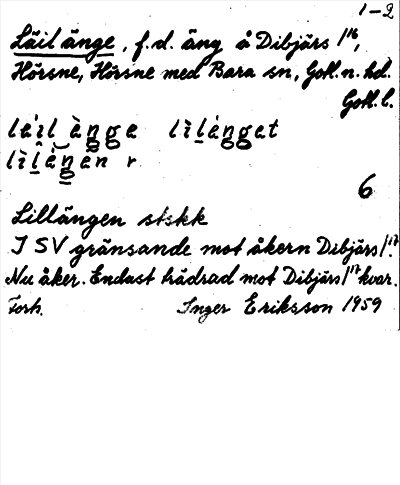 1-2
Läil änge, f.d. äng å Dibjärs 1/16,
Hörsne, Hörsne med Bara sn, Gotl. n. hd.
Gotl. l.
6
Lillängen stskk
I SV gränsande mot åkern Dibjärs 1/17.
Nu åker. Endast trädrad mot Dibjärs 1/17 kvar.
Forts. Inger Eriksson 1959